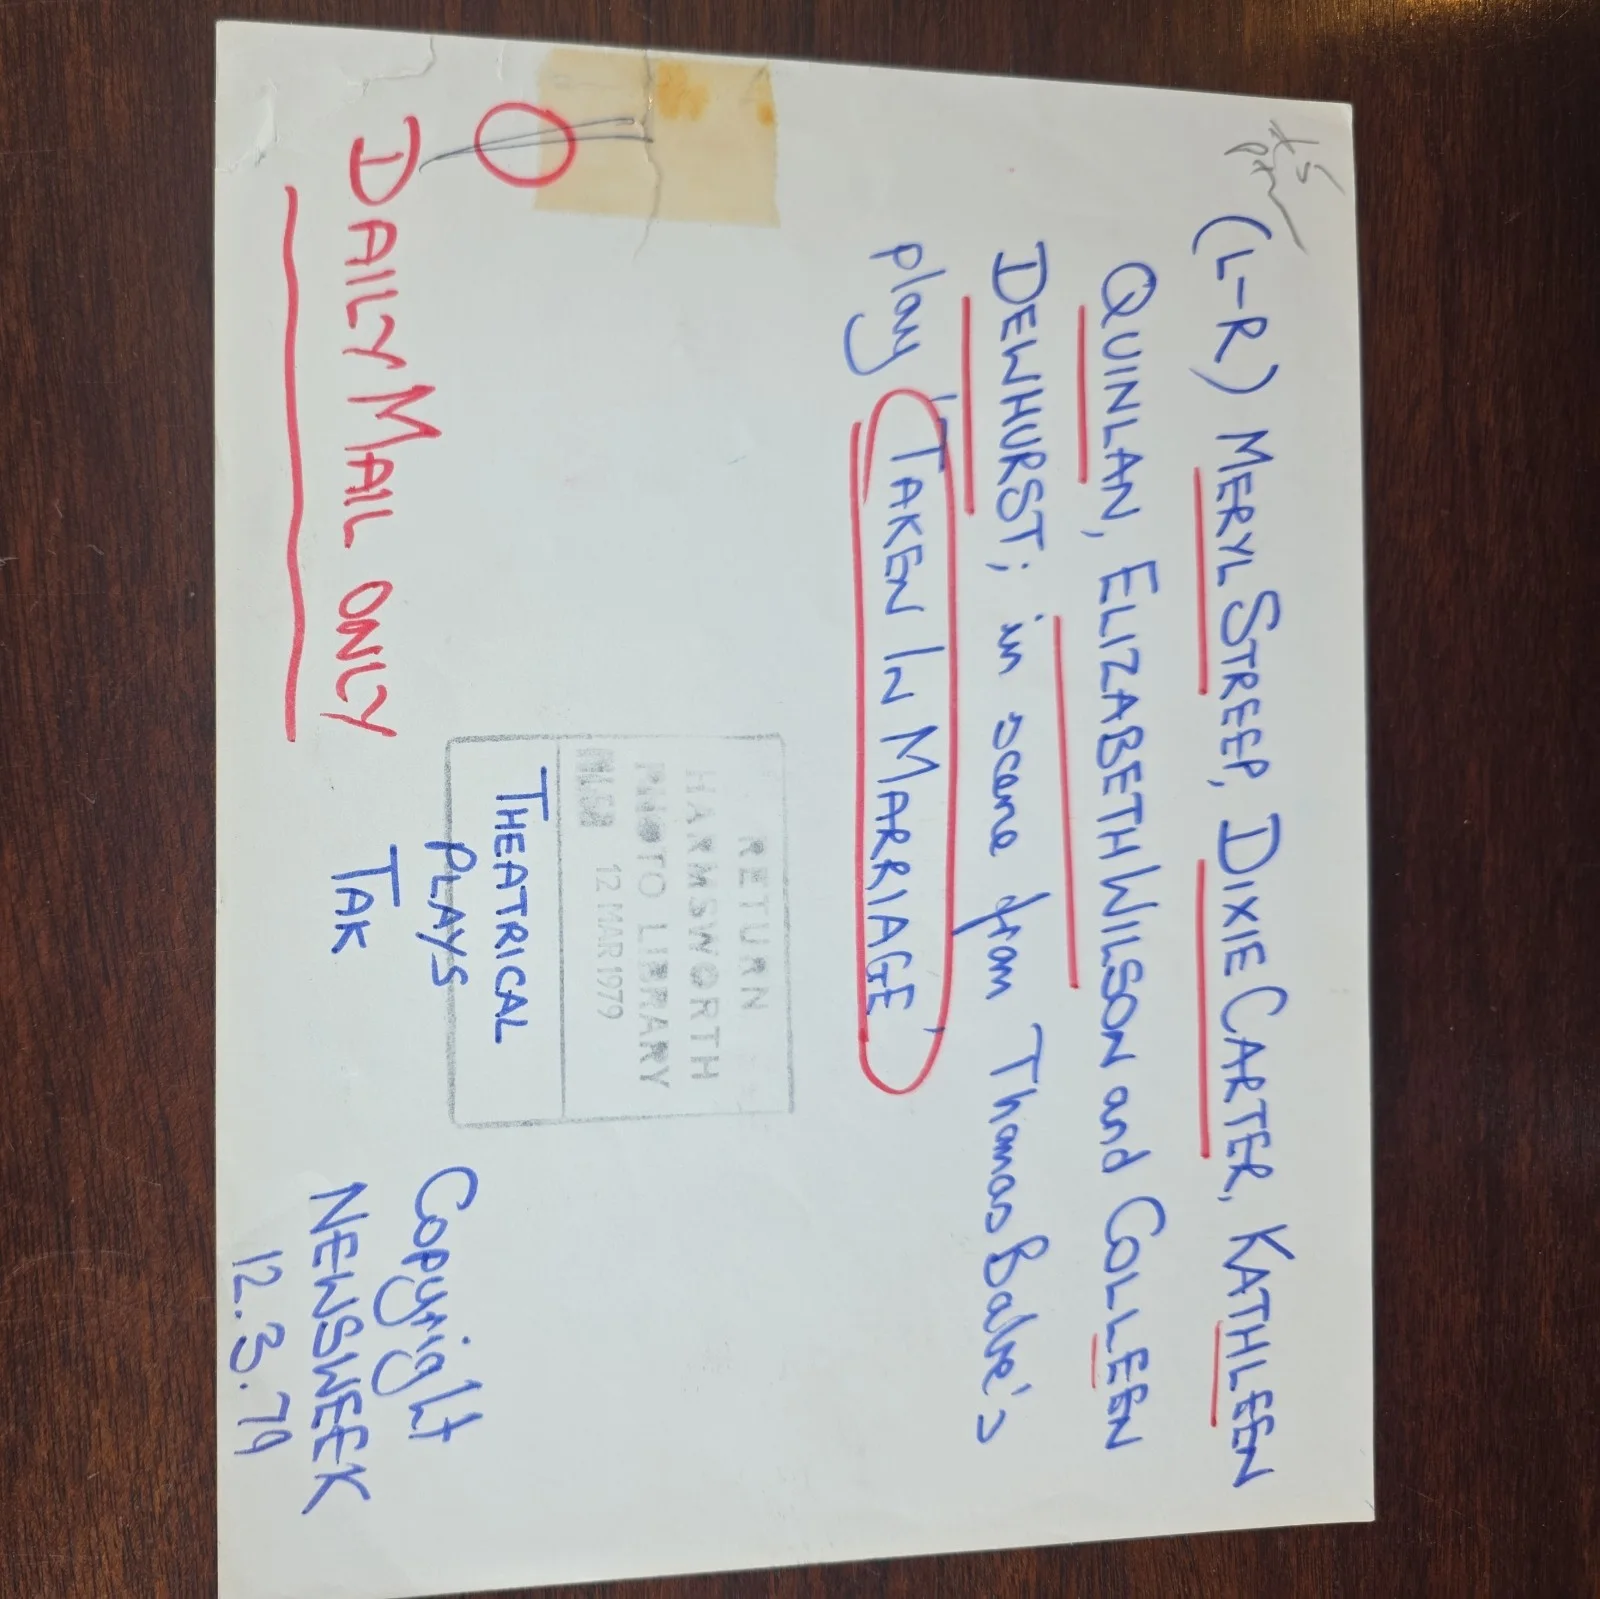 (L-R) MERYL STREEP, DIXIE CARTER, KATHLEEN
QUINLAN, ELIZABETH WILSON and COLLEEN
DEWHURST; in scene from Thomas Babe's
play 'TAKEN IN MARRIAGE'
RETURN
HARMSWORTH
PHOTO LIBRARY
12 MAR 1979
THEATRICAL
PLAYS
TAK
DAILY MAIL ONLY
Copyright
NEWSWEEK
12.3.79